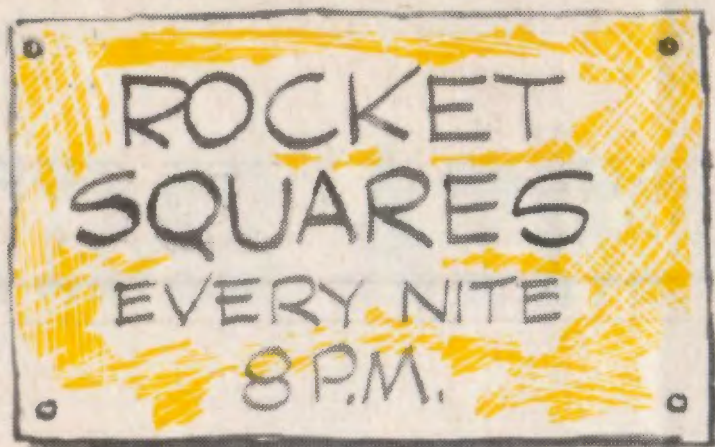 ROCKET
SQUARES
EVERY NITE
8 P.M.